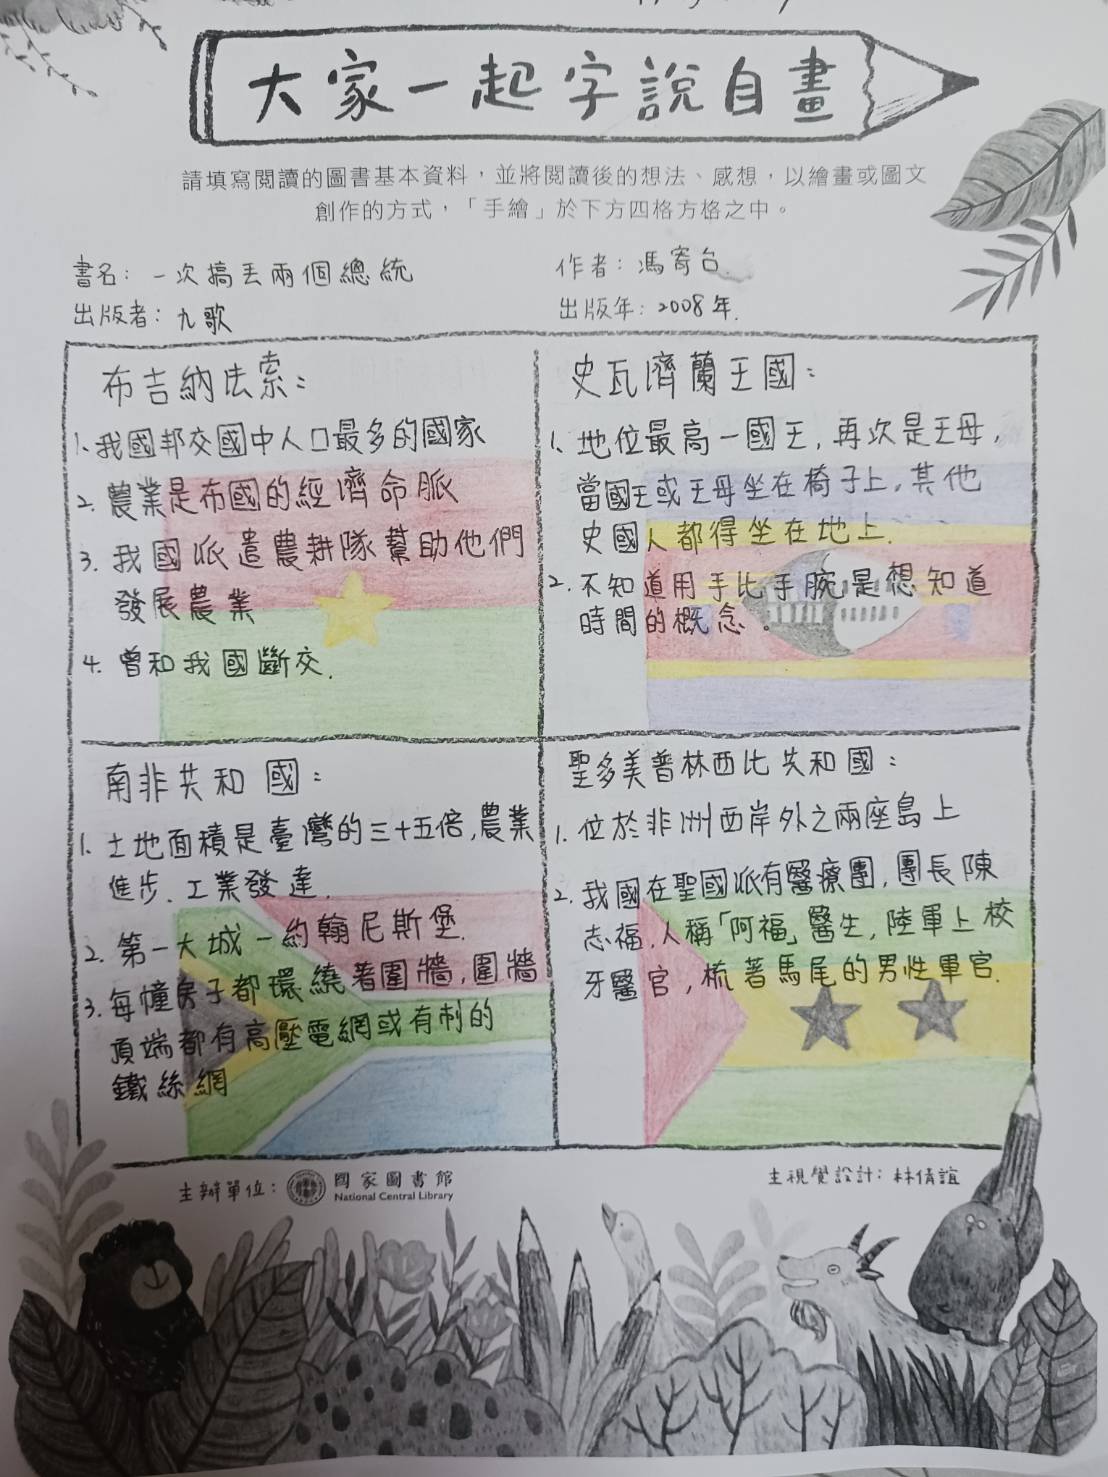 大家一起字說自畫
請填寫閱讀的圖書基本資料，並將閱讀後的想法、感想，以繪畫或圖文
創作的方式，「手繪」於下方四格方格之中。
書名：一次搞丟兩個總統
作者：馮寄台
出版者：九歌
出版年：2008年.
布吉納法索：
1.我國邦交國中人口最多的國家
2.農業是布國的經濟命脈
3.我國派遣農耕隊幫助他們
發展農業
4.曾和我國斷交.
史瓦濟蘭王國：
1.地位最高一國王,再次是王母,
當國王或王母坐在椅子上,其他
史國人都得坐在地上.
2.不知道用手比手腕是想知道
時間的概念。
南非共和國：
1.土地面積是臺灣的三十五倍,農業
進步.工業發達.
2.第一大城－約翰尼斯堡.
3.每幢房子都環繞著圍牆,圍牆
頂端都有高壓電網或有刺的
鐵絲網
聖多美普林西比共和國：
1.位於非洲西岸外之兩座島上
2.我國在聖國派有醫療團,團長陳
志福.人稱「阿福」醫生,陸軍上校
牙醫官,梳著馬尾的男性軍官.
主辦單位：國家圖書館
National Central Library
主視覺設計：林倩誼